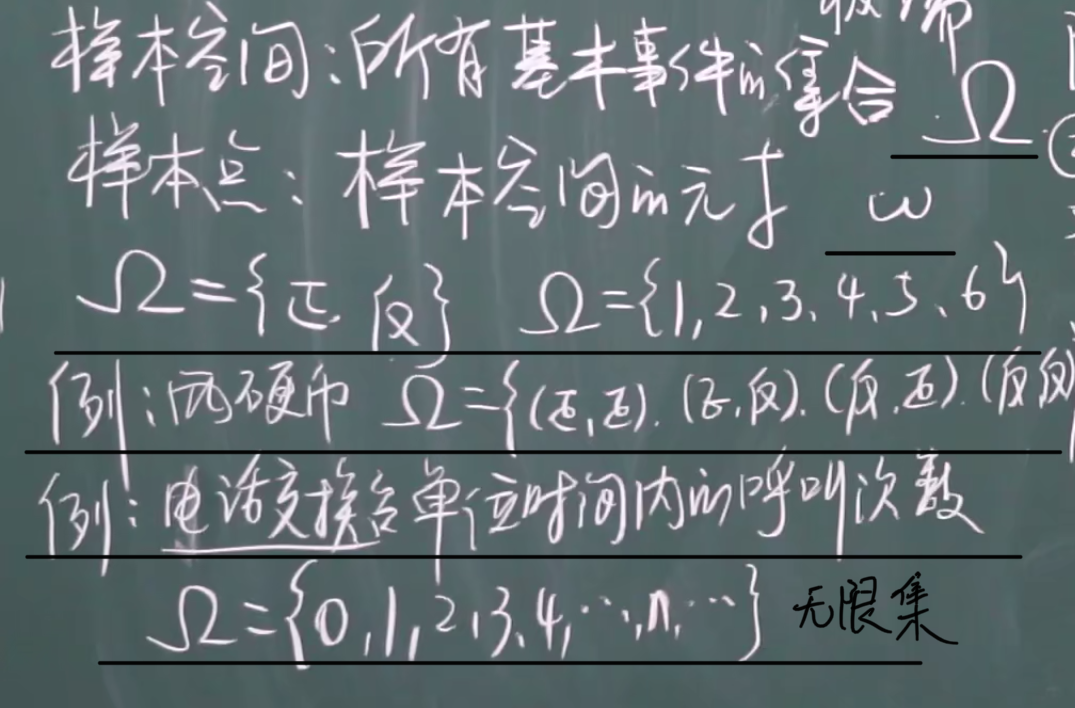 样本空间:所有基本事件的集合 Ω
样本点:样本空间的元素 ω
Ω={正.反} Ω={1,2,3、4、5、6}
例:两硬币 Ω={(正,正).(正,反).(反,正).(反反)
例:电话交换台单位时间内的呼叫次数
Ω={0,1,2,3、4,…,n,…} 无限集